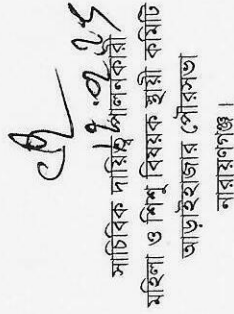 সাচিবিক দায়িত্ব পালনকারী
মহিলা ও শিশু বিষয়ক স্থায়ী কমিটি
আড়াইহাজার পৌরসভা
নারায়ণগঞ্জ।